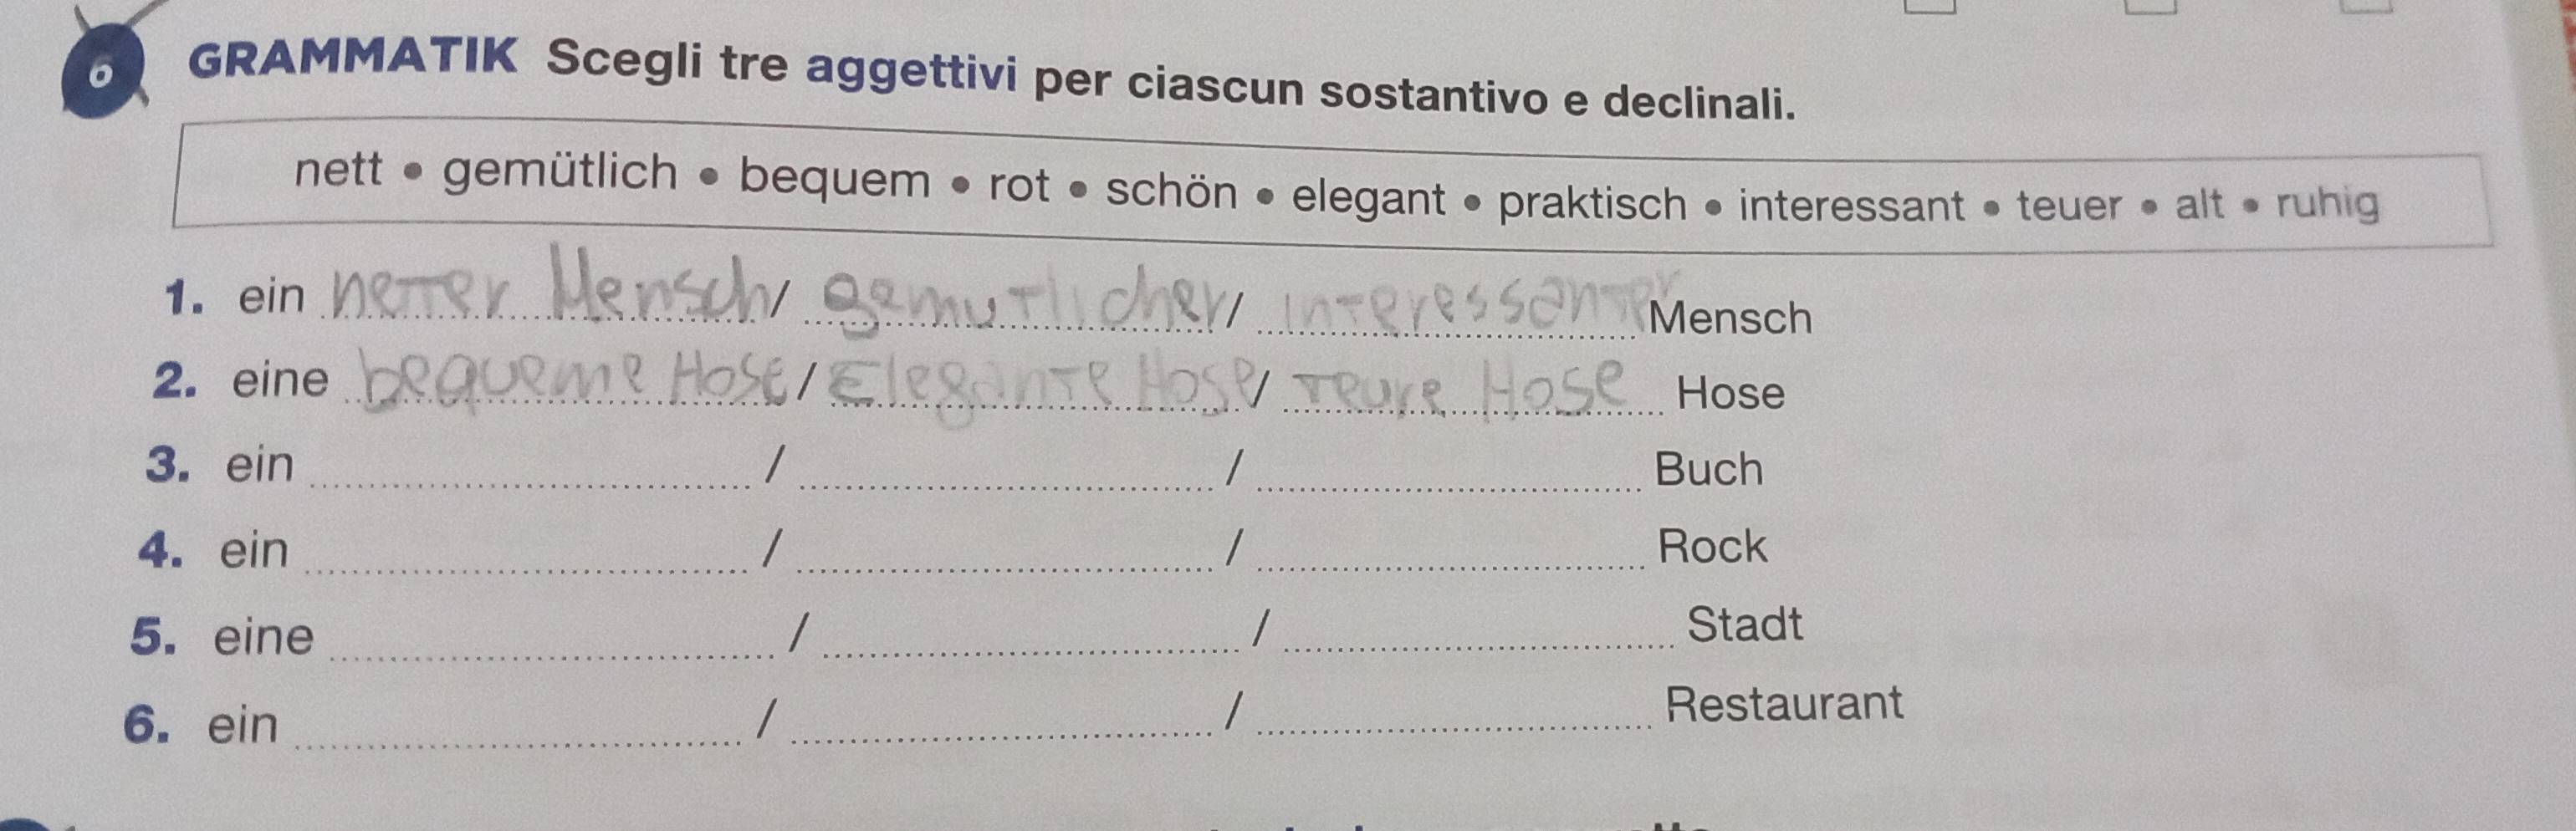 6 GRAMMATIK Scegli tre aggettivi per ciascun sostantivo e declinali.
nett • gemütlich • bequem • rot • schön • elegant • praktisch • interessant • teuer • alt • ruhig
1. ein netter Mensch / gemutlicher / interessanter Mensch
2. eine bequeme Hose / Elegante Hose / teure Hose Hose
3. ein / / Buch
4. ein / / Rock
5. eine / / Stadt
6. ein / / Restaurant